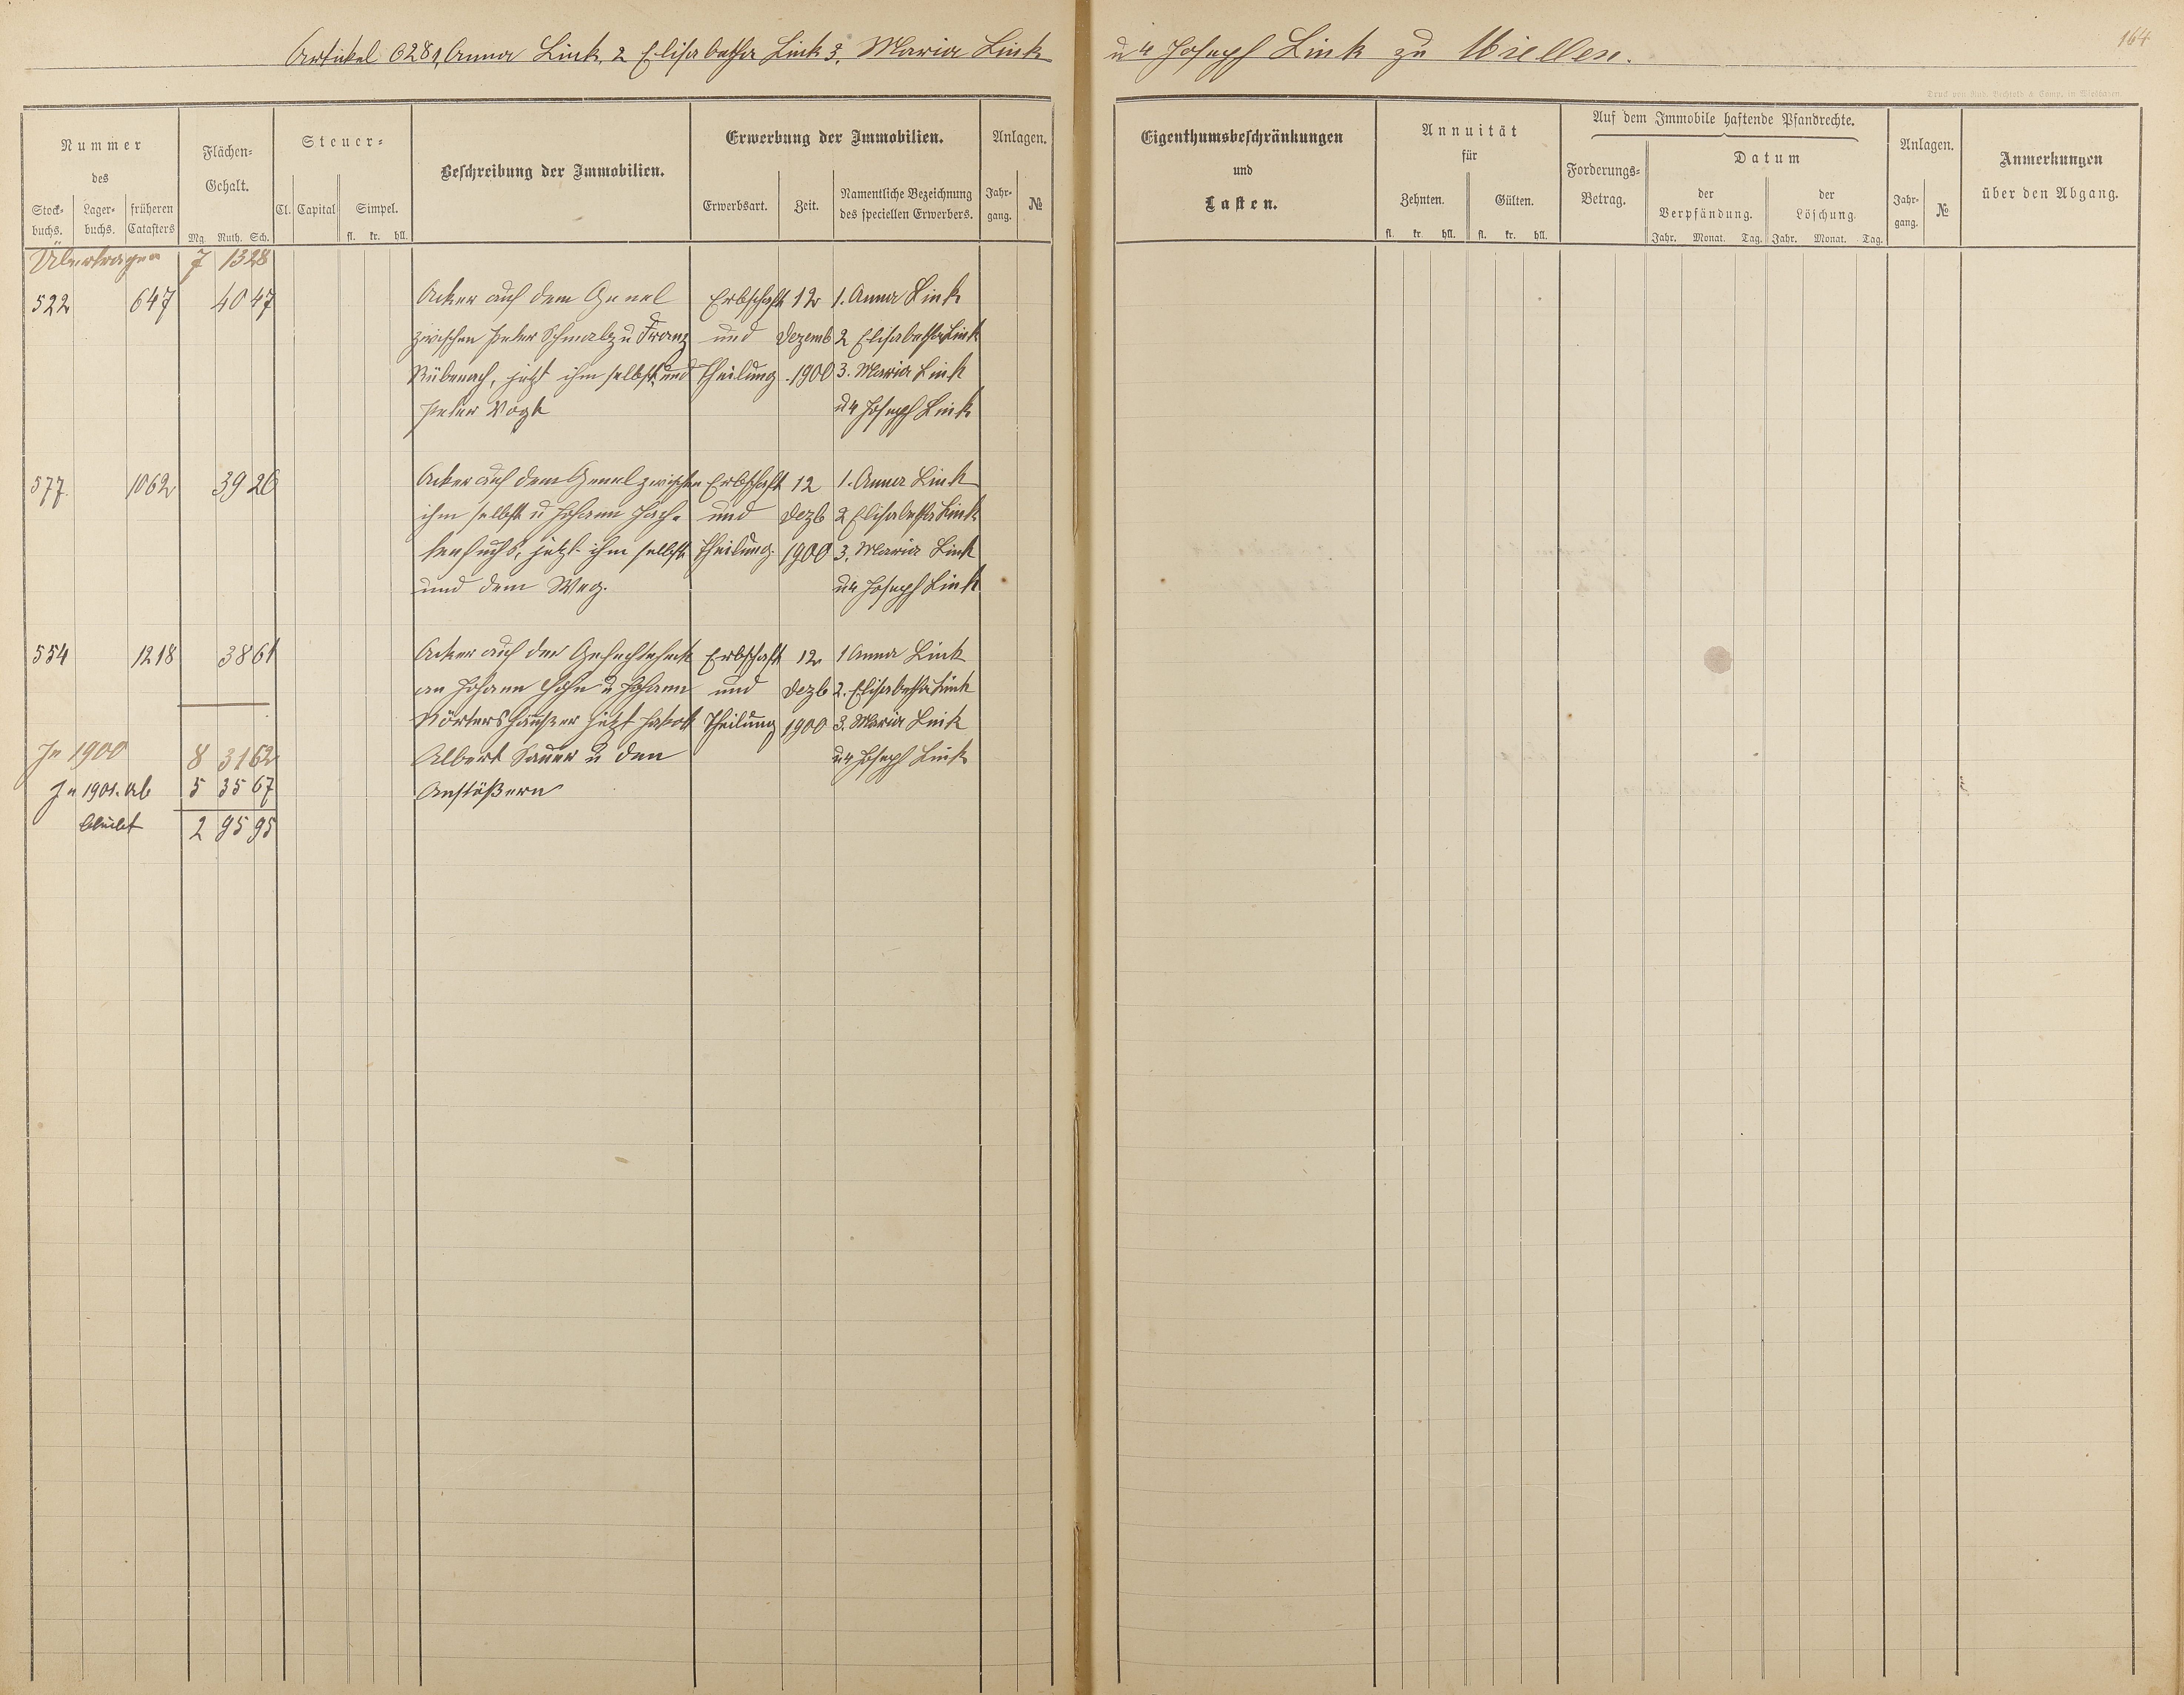 Artikel 628 1, Anna Link, 2 Elisabetha Link 3. Maria Link u 4 Joseph Link zu Miellen.
164
Nummer
des
Stock-
buchs.
Lager-
buchs.
früheren
Catasters
Flächen-
Gehalt.
Mg. Ruth. Sch.
Steuer-
Cl. Capital Simpel.
fl. kr. hll.
Beschreibung der Immobilien.
Erwerbung der Immobilien.
Erwerbsart. Zeit.
Namentliche Bezeichnung
des speciellen Erwerbers.
Anlagen.
Jahr-
gang.
№
Eigenthumsbeschränkungen
und
Lasten.
Annuität
für
Zehnten. Gülten.
fl. kr. hll. fl. kr. hll.
Auf dem Immobile haftende Pfandrechte.
Forderungs-
Betrag.
Datum
der
Verpfändung.
der
Löschung.
Jahr. Monat. Tag. Jahr. Monat. Tag.
Anlagen.
Jahr-
gang.
№
Anmerkungen
über den Abgang.
Übertragen 7 13 28
522 647 40 47 Acker auf dem Erbschaft 12 1. Anna Link
zwischen Peter Schmalz u Franz und Dezemb 2 Elisabetha Link
Rübenach, jetzt ihm selbst und Theilung 1900 3. Maria Link
Peter Vogt u 4 Joseph Link
577 1062 39 26 Acker auf dem zwischen Erbschaft 12 1. Anna Link
ihm selbst u Johann und Dezb 2 Elisabetha Link
jetzt ihm selbst Theilung. 1900 3. Maria Link
und dem Weg. u 4 Joseph Link
554 1218 38 61 Acker auf der Erbschaft 12 1 Anna Link
an Johann Hohn u Johann und Dezb 2. Elisabetha Link
Nörtershäußer jetzt Jakob Theilung 1900 3. Maria Link
In 1900 8 31 62 Albert Sauer u den u 4 Joseph Link
In 1901. Ab 5 35 67 Anstößern
bleibt 2 95 95